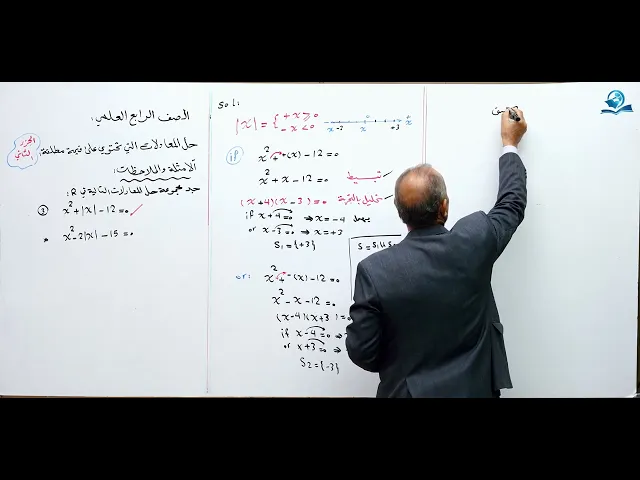 الصف الرابع العلمي:
حل المعادلات التي تحتوي على قيمة مطلقة
الجزء الثاني
الأمثلة والملاحظات:
جد مجموعة حل المعادلات التالية في R:
① x² + |x| - 12 = 0 ✓
• x² - 2|x| - 15 = 0
Sol:
|x| = { +x ≥ 0
- x < 0
x -2 x 0 +3 x
if
x² + (x) - 12 = 0
x² + x - 12 = 0 تبسيط
(x + 4)(x - 3) = 0 تحليل بالتجربة
if x + 4 = 0 ⇒ x = -4 يهمل
or x - 3 = 0 ⇒ x = +3
S₁ = {+3}
S = S₁ ∪ S
or: x² + -(x) - 12 = 0
x² - x - 12 = 0
(x - 4)(x + 3) = 0
if x - 4 = 0 ⇒
or x + 3 = 0 ⇒
S₂ = {-3}